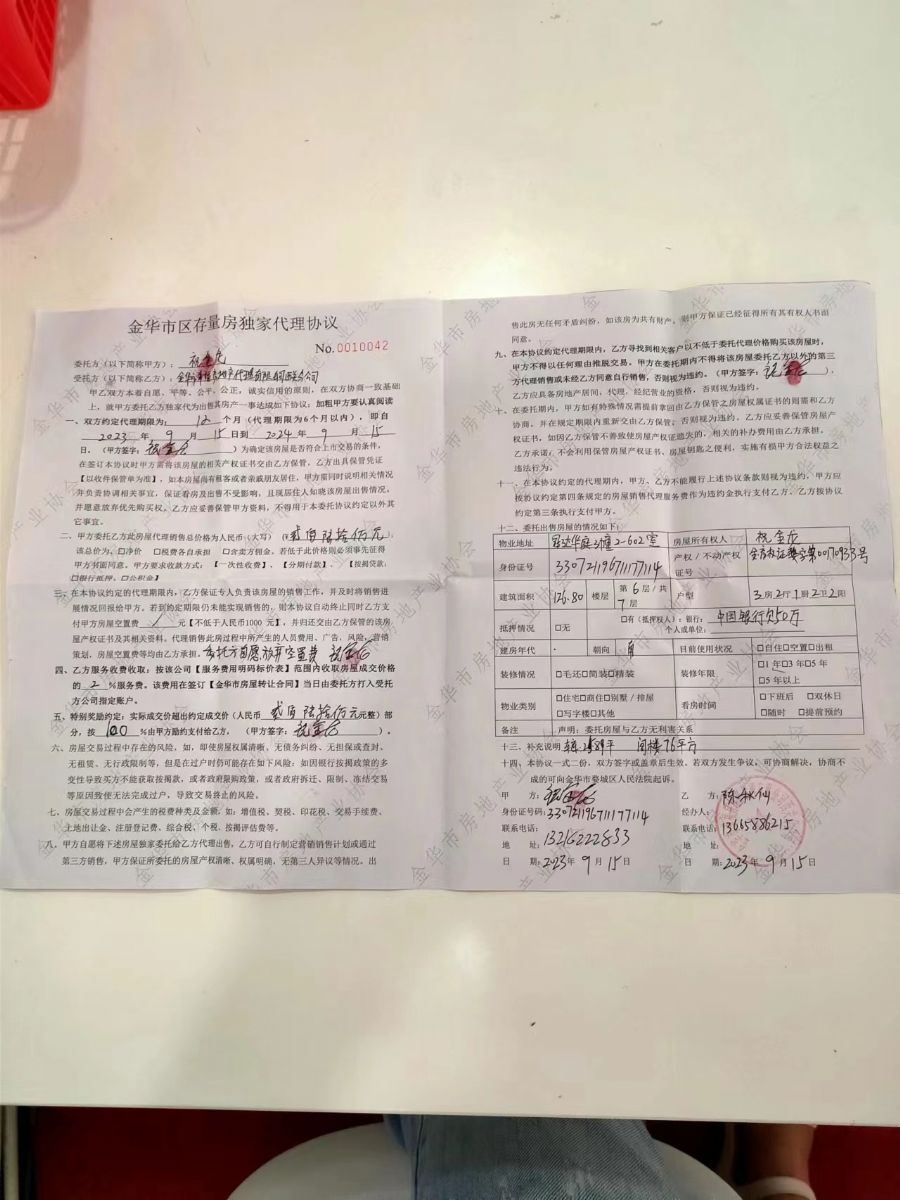 金华市区存量房独家代理协议
No.0010042
委托方（以下简称甲方）：
受托方（以下简称乙方）：
甲乙双方本着自愿，平等、公平，公正，诚实信用的原则，在双方协商一致基础
上，就甲方委托乙方独家代为出售其房产一事达成如下协议：加粗甲方要认真阅读
一、双方约定代理期限为： 12 个月（代理期限为6个月以内），即自
2023 年 9 月 15日到 2024 年 9 月 15
日，（甲方签字： ）为确定该房屋是否符合上市交易的条件，
在签订本协议时甲方需将该房屋的相关产权证书交由乙方保管，乙方出具保管凭证
【以收件保管单为准】，如本房屋尚有租客或者亲戚朋友居住，甲方需同时说明相关情况
并负责协调相关事宜，保证看房及出售不受影响，且现居住人知晓该房屋出售情况，
并愿意放弃优先购买权。乙方应妥善保管甲方资料，不得用于本委托协议约定以外其
它事宜。
二、甲方委托乙方此房屋代理销售总价格为人民币（大写）（贰百陆拾万元）；
该总价为，□净价 □税费各自承担 □含卖方佣金。若低于此价格则必须事先征得
甲方书面同意。甲方要求收款方式：【一次性收费】、【分期付款】、【按揭贷款：
□银行抵押、□公积金】
三、在本协议约定的代理期限内，乙方保证专人负责该房屋的销售工作，并及时将销售进
展情况回报给甲方。若到约定期限仍未能实现销售的，则本协议自动终止同时乙方支
付甲方房屋空置费 / 元【不低于人民币1000 元】，并归还交由乙方保管的该房
屋产权证书及其相关资料。代理销售此房过程中所产生的人员费用、广告、风险、营销
策划，房屋空置费等均由乙方承担。委托方自愿放弃空置费
四、乙方服务收费收取：按该公司【服务费用明码标价表】范围内收取房屋成交价格
的 2 %服务费。该费用在签订【金华市房屋转让合同】当日由委托方打入受托
方公司指定账户。
五、特别奖励约定：实际成交价超出约定成交价（人民币 贰百陆拾万元元整）部
分，按 100 %由甲方励约支付给乙方，（甲方签字： ）。
六、房屋交易过程中存在的风险，如，即使房屋权属清晰、无债务纠纷、无担保或查封、
无租赁、无行政限制等，但是在过户时仍可能存在如下风险：如因银行按揭政策的多
变性导致买方不能获取按揭款，或者政府限购政策，或者政府拆迁、限制、冻结交易
等原因致使无法完成过户，导致交易终止的风险。
七、房屋交易过程中会产生的税费种类及金额，如：增值税、契税、印花税、交易手续费、
土地出让金、注册登记费、综合税、个税、按揭评估费等。
八、甲方自愿将下述房屋独家委托给乙方代理出售，乙方可自行制定营销销售计划或通过
第三方销售，甲方保证所委托的房屋产权清晰、权属明确，无第三人异议等情况。出
售此房无任何矛盾纠纷，如该房为共有财产，则甲方保证已经征得所有其有权人书面
同意。
九、在本协议约定代理期限内，乙方寻找到相关客户以不低于委托代理价格购买该房屋时，
甲方不得以任何理由推脱交易。甲方在委托期内不得将该房屋委托乙方以外的第三
方代理销售或未经乙方同意自行销售，否则视为违约。（甲方签字： ），
乙方应具备房地产居间，代理，经纪营业的资格，否则视为违约。
十、在委托期内，甲方如有特殊情况需提前拿回由乙方保管之房屋权属证书的则需和乙方
协商，并在规定期限内重新交由乙方保管；否则视为违约，乙方应妥善保管房屋产
权证书，如因乙方保管不善致使房屋产权证遗失的，相关的补办费用由乙方承担。
乙方承诺：不会利用保管房屋产权证书、房屋钥匙之便利，实施有损甲方合法权益之
违法行为。
十一、在本协议约定的代理期内，甲方、乙方不能履行上述协议条款则视为违约，甲方应
按协议约定第四条规定的房屋销售代理服务费作为违约金执行支付乙方。乙方按协议
约定第三条执行支付甲方。
十二、委托出售房屋的情况如下：
物业地址 冠达华庭3幢2-602室 房屋所有权人
身份证号 330721196711177114 产权／不动产权证号
建筑面积 126.80 楼层 第 6 层／共 7 层 户型 3 房 2 厅 1 厨 2 卫 2 阳
抵押情况 □无 □有（抵押权人）：银行： 中国银行欠50万
个人或单位：
建房年代 - 朝向 南 目前使用状况 □自住□空置□出租
装修情况 □毛坯□简装□精装 装修年限 □1年□3年□5年
□5年以上
物业类别 □住宅□商住□别墅／排屋
□写字楼□其他
看房时间 □下班后 □双休日
□随时 □提前预约
备注 声明：委托房屋与乙方无利害关系
十三、补充说明 阁楼76平方
十四、本协议一式二份，双方签字或盖章后生效。若双方发生争议，可协商解决，协商不
成的可向金华市婺城区人民法院起诉。
甲 方：
身份证号码：330721196711177114
联系电话：13216222833
地 址：
日 期：2023年 9月 15日
乙 方：
经办人：
联系电话：13665886215
地 址：
日 期：2023年 9月 15日